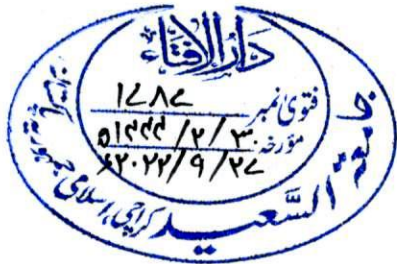 دارالافتاء
فتویٰ نمبر ۱۷۸۷
مؤرخہ ۳۰/۲/۱۴۴۴ھ
۲۷/۹/۲۰۲۲ء
جامعة السعید کراچی، اسلامی جمہوریہ